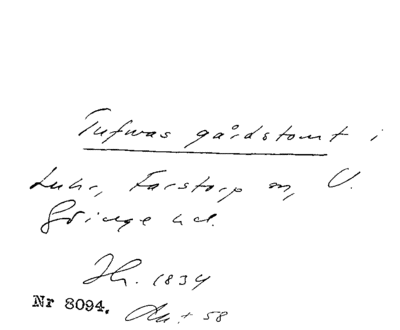 Tufwas gårdstomt i
Luhr, Farstorp sn, V.
Göinge hd.
Hr. 1834
Nr 8094. Akt 58